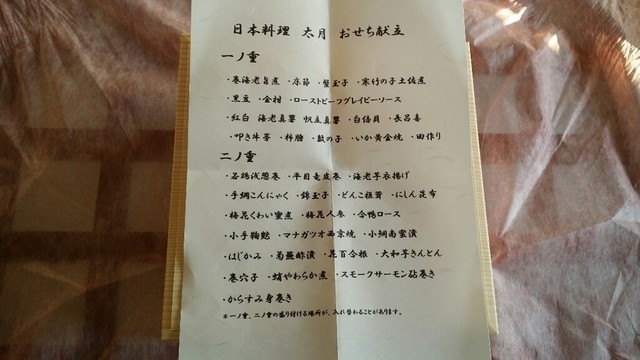 日本料理 太月 おせち献立
一ノ重
・巻海老旨煮 ・床節 ・蟹玉子 ・寒竹の子土佐煮
・黒豆 ・金柑 ・ローストビーフグレイビーソース
・紅白 海老真薯 帆立真薯 ・白倍貝 ・長呂喜
・叩き牛蒡 ・柿膾 ・数の子 ・いか黄金焼 ・田作り
二ノ重
・若鶏浅葱巻 ・平目竜皮巻 ・海老芋衣揚げ
・手綱こんにゃく ・錦玉子 ・どんこ椎茸 ・にしん昆布
・梅花くわい蜜煮 ・梅花人参 ・合鴨ロース
・小手鞠麩 ・マナガツオ西京焼 ・小鯛南蛮漬
・はじかみ ・菊蕪酢漬 ・花百合根 ・大和芋きんとん
・巻穴子 ・蛸やわらか煮 ・スモークサーモン砧巻き
・からすみ身巻き
＊一ノ重、二ノ重の盛り付ける場所が、入れ替わることがあります。